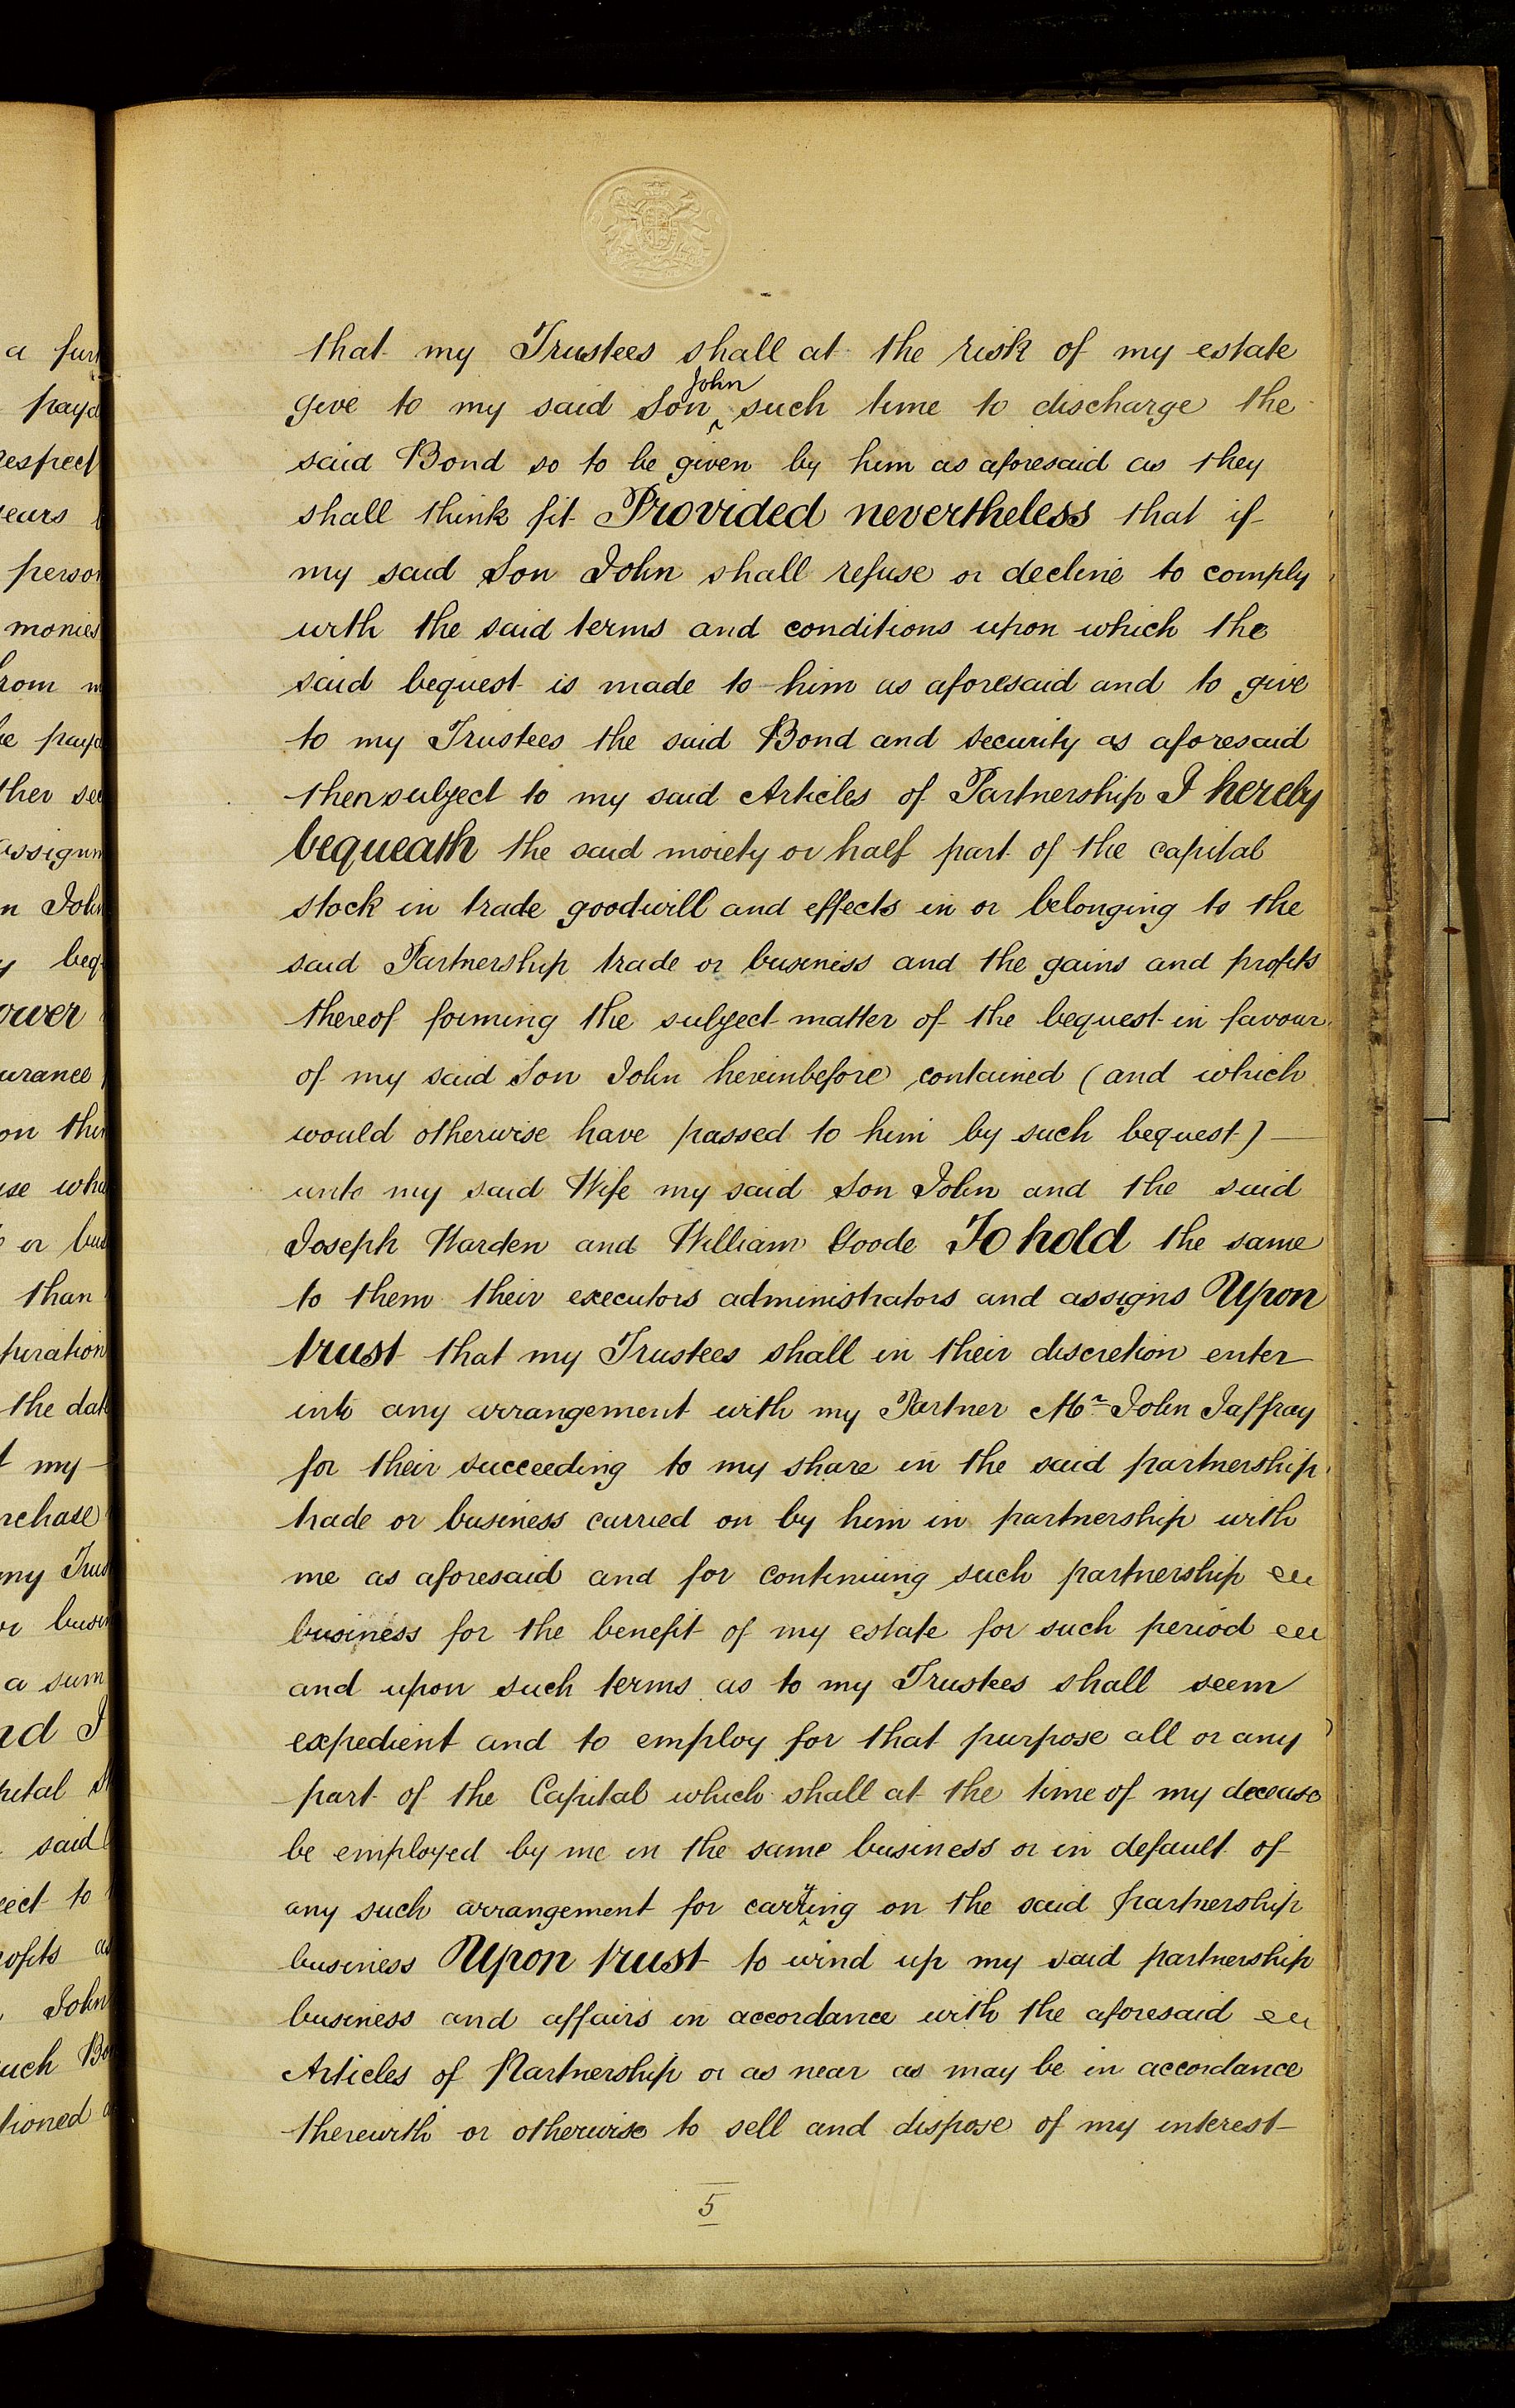 that my Trustees shall at the risk of my estate
give to my said Son John such time to discharge the
said Bond so to be given by him as aforesaid as they
shall think fit Provided nevertheless that if
my said Son John shall refuse or decline to comply
with the said terms and conditions upon which the
said bequest is made to him as aforesaid and to give
to my Trustees the said Bond and security as aforesaid
then subject to my said Articles of Partnership I hereby
bequeath the said moiety or half part of the capital
stock in trade goodwill and effects in or belonging to the
said Partnership trade or business and the gains and profits
thereof forming the subject matter of the bequest in favour
of my said Son John hereinbefore contained (and which
would otherwise have passed to him by such bequest)
unto my said Wife my said Son John and the said
Joseph Warden and William Goode To hold the same
to them their executors administrators and assigns Upon
trust that my Trustees shall in their discretion enter
into any arrangement with my Partner Mr John Jaffray
for their succeeding to my share in the said partnership
trade or business carried on by him in partnership with
me as aforesaid and for continuing such partnership
business for the benefit of my estate for such period
and upon such terms as to my Trustees shall seem
expedient and to employ for that purpose all or any
part of the Capital which shall at the time of my decease
be employed by me in the same business or in default of
any such arrangement for carrying on the said partnership
business Upon trust to wind up my said partnership
business and affairs in accordance with the aforesaid
Articles of Partnership or as near as may be in accordance
therewith or otherwise to sell and dispose of my interest
5